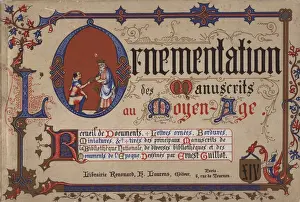 L'Ornementation
des Manuscrits
au Moyen-Age.
Recueil de Documents, Lettres ornées, Bordures,
Miniatures, &c. tirés des principaux Manuscrits de
la Bibliothèque Nationale, de diverses bibliothèques et des
Monuments de l'Epoque Dessinés par Ernest Guillot.
Librairie Renouard, H. Laurens, Editeur, Paris
6, rue de Tournon.
XIV